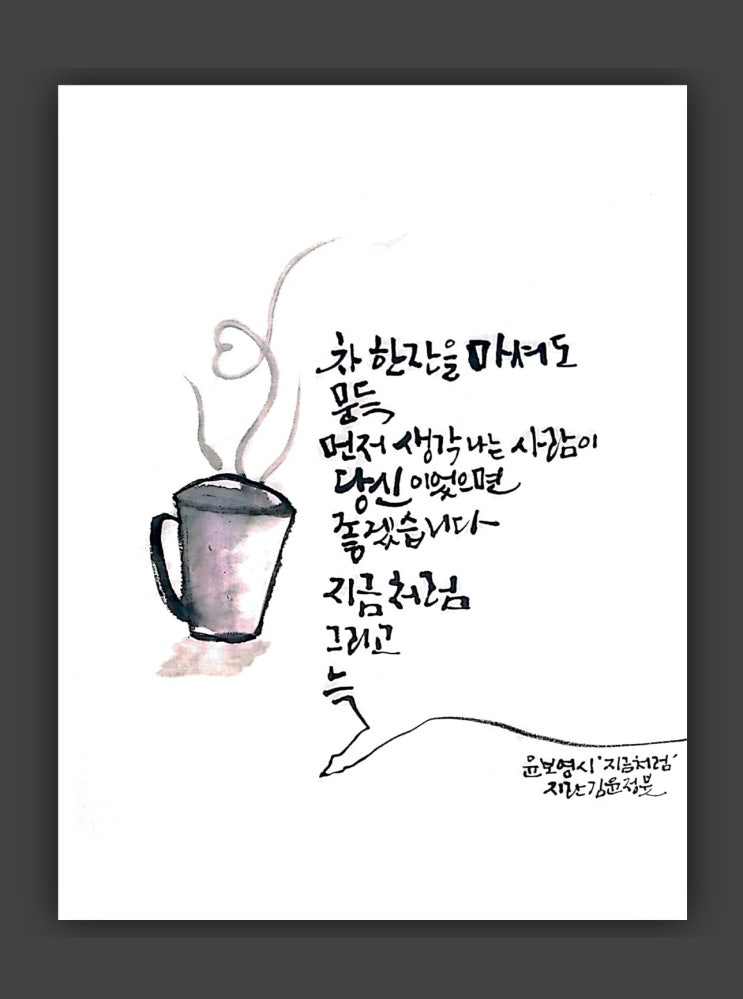 차 한잔을 마셔도
문득
먼저 생각나는 사람이
당신이었으면
좋겠습니다
지금처럼
그리고
늘
윤보영시 '지금처럼'
지란 김윤정붓